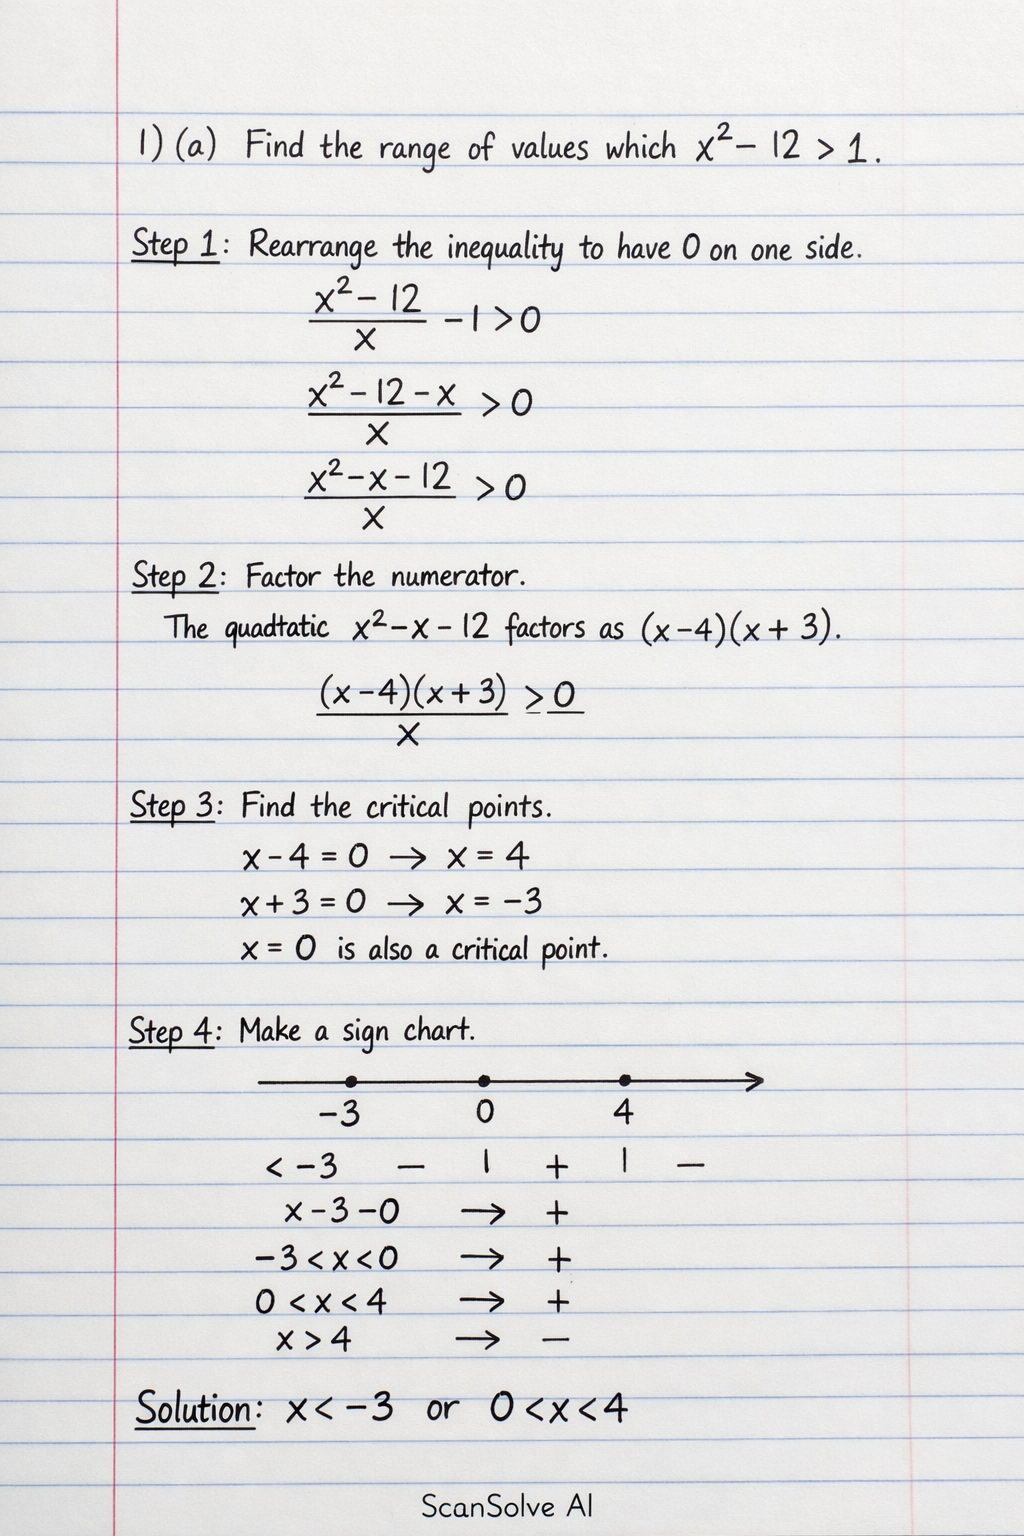 1) (a) Find the range of values which x² − 12 > 1.
Step 1: Rearrange the inequality to have 0 on one side.
x² − 12
x
−1 > 0
x² − 12 − x
x
> 0
x² − x − 12
x
> 0
Step 2: Factor the numerator.
The quadtatic x² − x − 12 factors as (x − 4)(x + 3).
(x − 4)(x + 3)
x
> 0
Step 3: Find the critical points.
x − 4 = 0 → x = 4
x + 3 = 0 → x = −3
x = 0 is also a critical point.
Step 4: Make a sign chart.
−3 0 4
< −3 − | + | −
x − 3 − 0 → +
−3 < x < 0 → +
0 < x < 4 → +
x > 4 → −
Solution: x < −3 or 0 < x < 4
ScanSolve AI